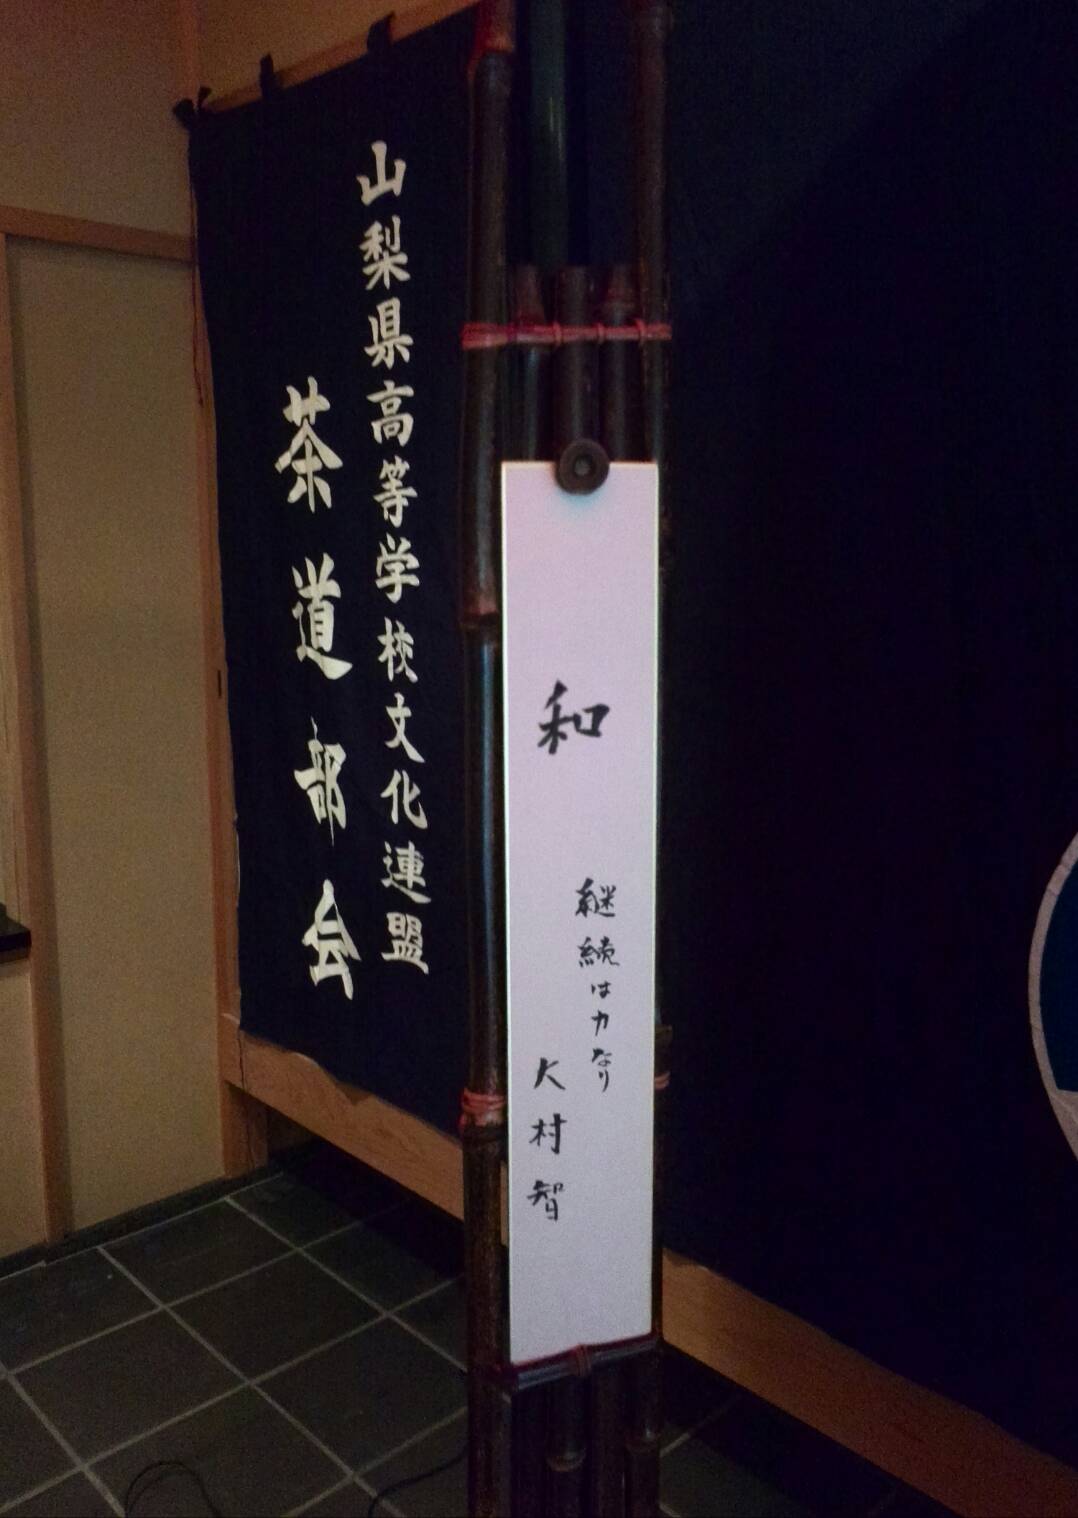 山梨県高等学校文化連盟
茶道部会
和
継続は力なり
大村智